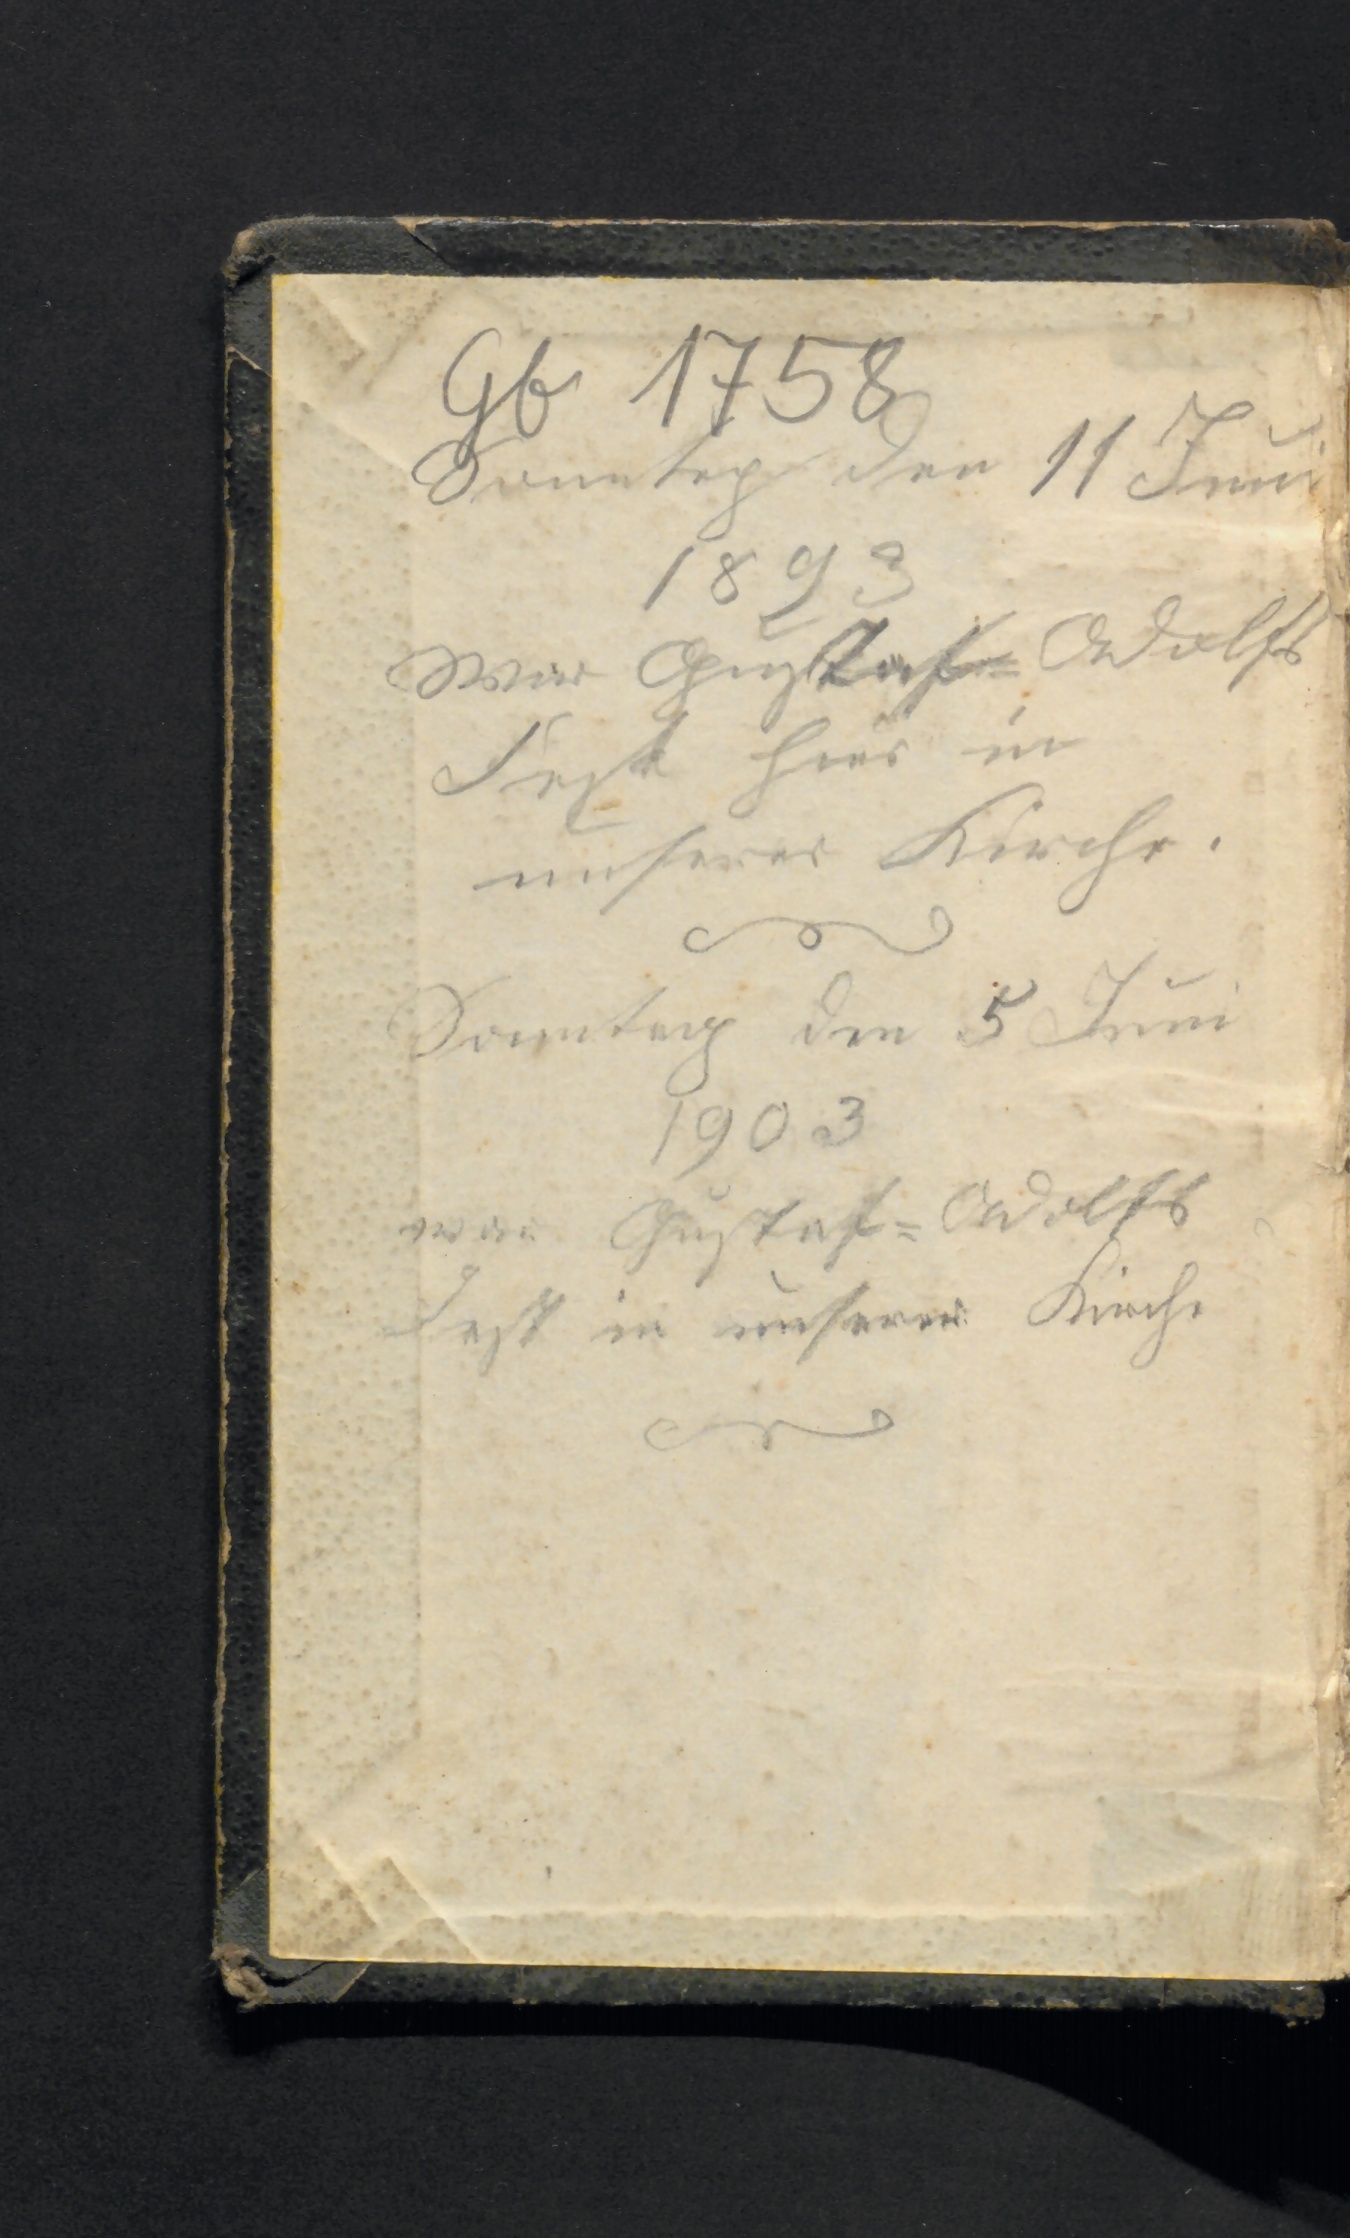 Gb 1758
Sonntag den 11 Juni
1893
War Gustaf= Adolfs
Fest hier in
unserer Kirche.
Sonntag den 5 Juni
1903
war Gustaf= Adolfs
Fest in unserer Kirche